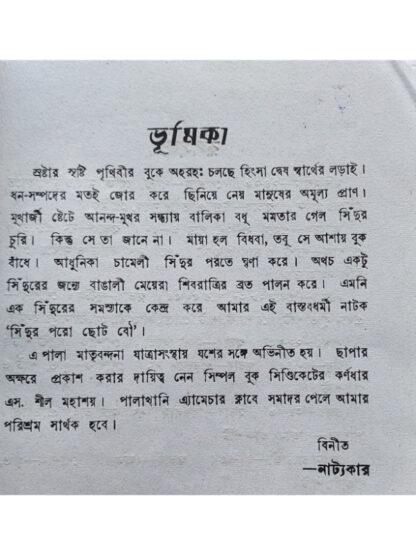 ভূমিকা
স্রষ্টার সৃষ্টি পৃথিবীর বুকে অহরহ: চলছে হিংসা দ্বেষ স্বার্থের লড়াই।
ধন-সম্পদের মতই জোর করে ছিনিয়ে নেয় মানুষের অমূল্য প্রাণ।
মুখার্জী ষ্টেটে আনন্দ-মুখর সন্ধ্যায় বালিকা বধূ মমতার গেল সিঁদুর
চুরি। কিন্তু সে তা জানে না। মায়া হল বিধবা, তবু সে আশায় বুক
বাঁধে। আধুনিকা চামেলী সিঁদুর পরতে ঘৃণা করে। অথচ একটু
সিঁদুরের জন্যে বাঙালী মেয়েরা শিবরাত্রির ব্রত পালন করে। এমনি
এক সিঁদুরের সমস্যাকে কেন্দ্র করে আমার এই বাস্তবধর্মী নাটক
‘সিঁদুর পরো ছোট বৌ’।
এ পালা মাতৃবন্দনা যাত্রাসংস্থায় যশের সঙ্গে অভিনীত হয়। ছাপার
অক্ষরে প্রকাশ করার দায়িত্ব নেন সিম্পল বুক সিণ্ডিকেটের কর্ণধার
এস. শীল মহাশয়। পালাখানি এ্যামেচার ক্লাবে সমাদর পেলে আমার
পরিশ্রম সার্থক হবে।
বিনীত
—নাট্যকার